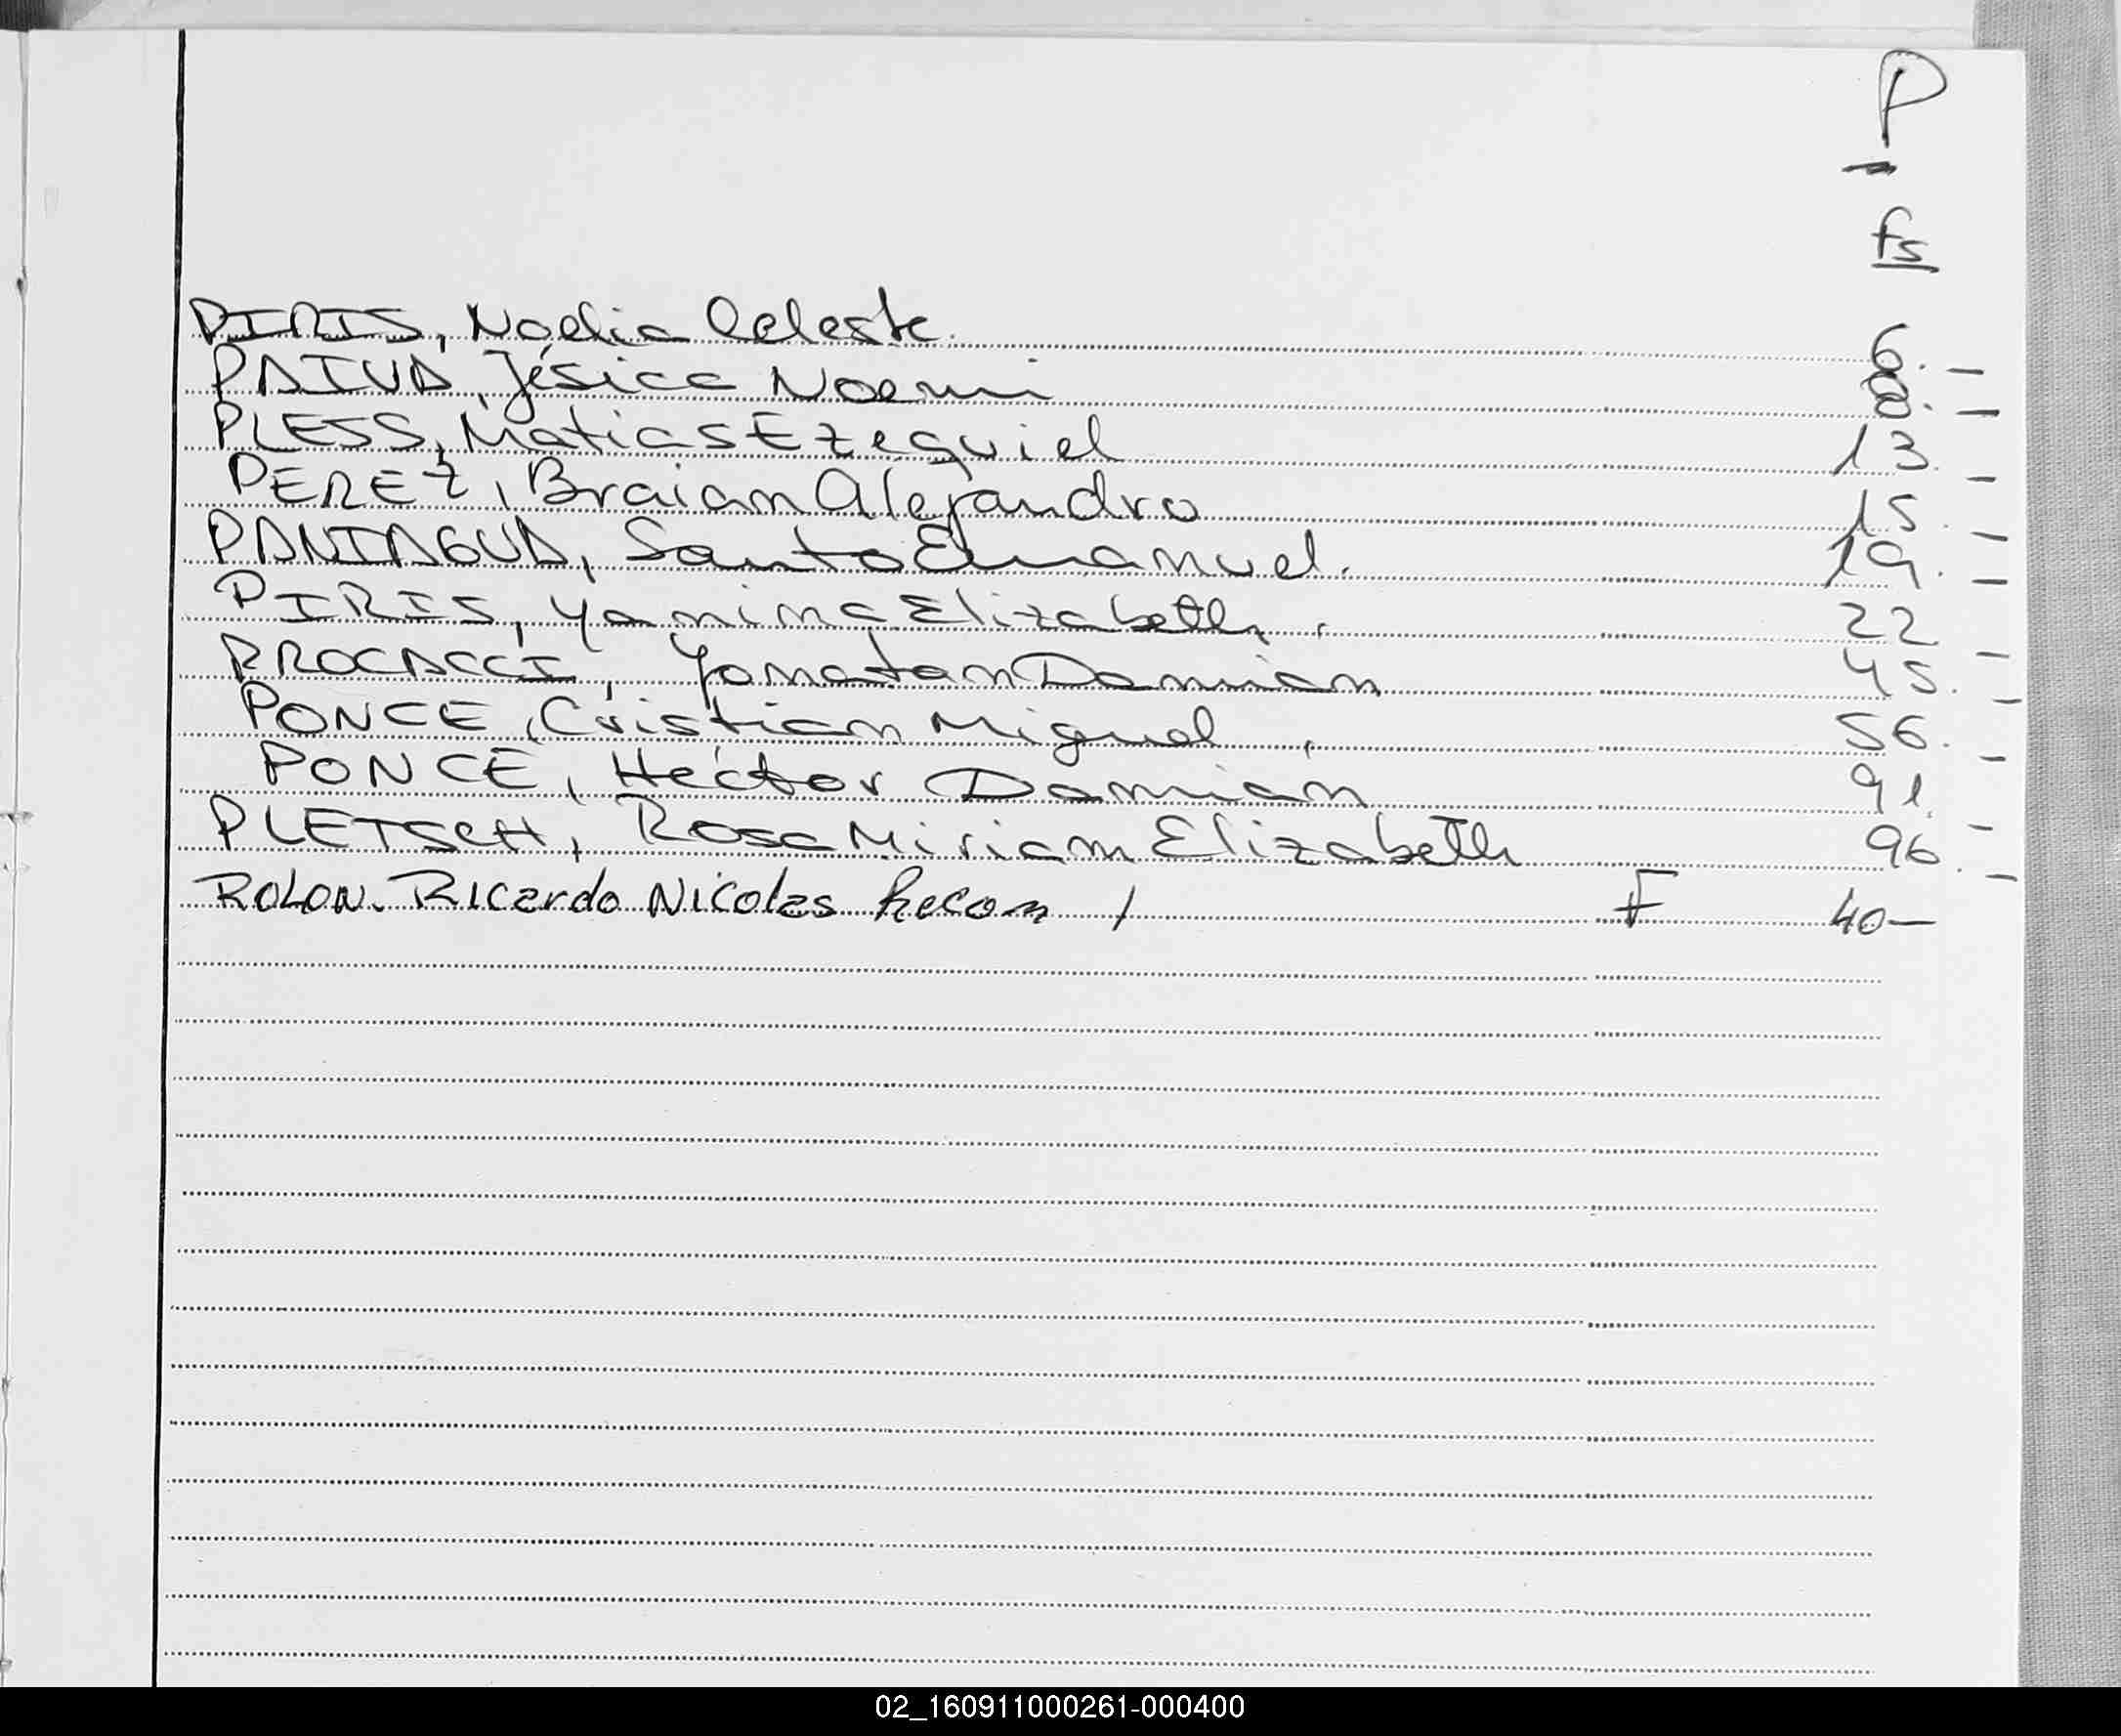 P
fs
PIRIS, Noelia Celeste 6.-
PAIVA, Jésica Noemi 8.-
PLESS, Matias Ezequiel 13.-
PEREZ, Braian Alejandro 15.-
PANIAGUA, Santo Emanuel. 19.-
PIRIS, Yamina Elizabeth. 22.-
PROCACCI, Yonatan Damian 45.-
PONCE, Cristian Miguel 56.-
PONCE, Hector Damian 91.-
PLETSCH, Rosa Miriam Elizabeth 96.-
ROLON. Ricardo Nicolas Recon / F 40-
02_160911000261-000400